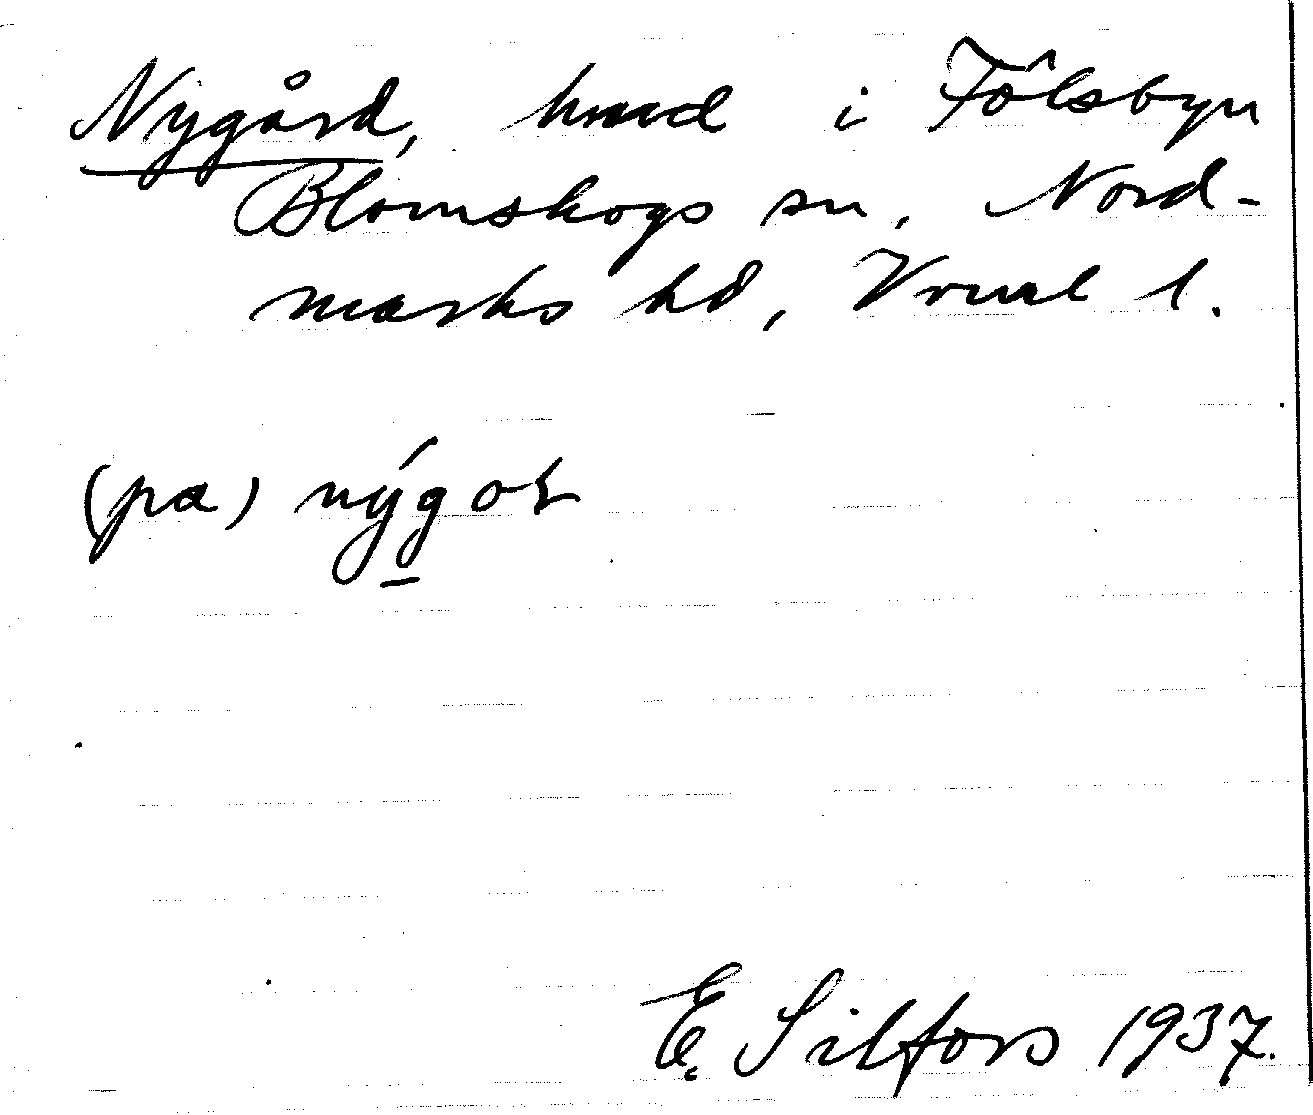 Nygård, hmd i Fölsbyn
Blomskogs sn, Nord-
marks hd, Vrml l.
(pa) nýgot
E. Silfors 1937.